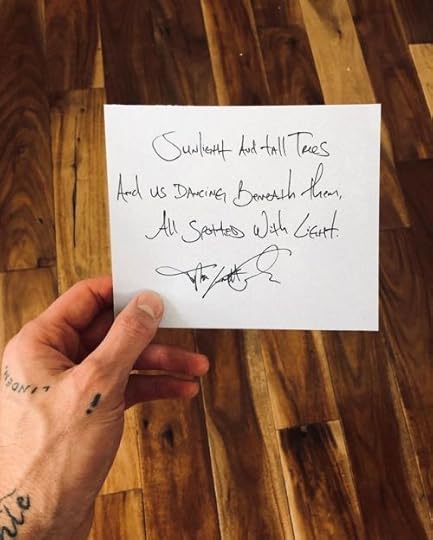 Sunlight And tall Trees
And us Dancing Beneath them,
All Spotted With Light.